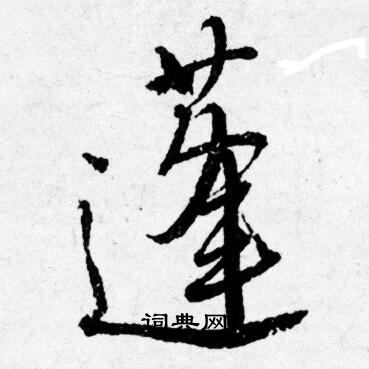 蓬
词典网